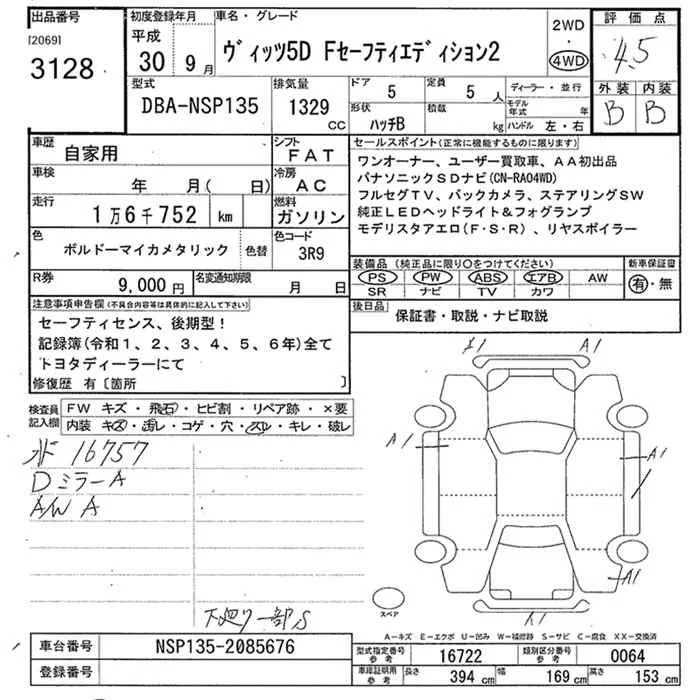 出品番号
[2069]
3128
初度登録年月
平成
30 9 月
車名・グレード
ヴィッツ5D Fセーフティエディション2
2WD
・
4WD
評価点
4.5
外装 内装
B B
型式
DBA-NSP135
排気量
1329
CC
ドア
5
定員
5 人
形状
ハッチB
積載
kg
ディーラー・並行
モデル年式 年
ハンドル 左・右
車歴
自家用
シフト
FAT
車検
年 月( 日)
冷房
AC
走行
1万6千752 km
燃料
ガソリン
色
ボルドーマイカメタリック
色替
色コード
3R9
R券
9,000 円
名変通知期限
月 日
セールスポイント(正常に機能するものに限ります)
ワンオーナー、ユーザー買取車、AA初出品
パナソニックSDナビ(CN-RA04WD)
フルセグTV、バックカメラ、ステアリングSW
純正LEDヘッドライト&フォグランプ
モデリスタアエロ(F・S・R)、リヤスポイラー
装備品 (純正品に限り○をつけてください)
PS PW ABS エアB AW
SR ナビ TV カワ
新車保証書
有・無
後日品
保証書・取説・ナビ取説
注意事項申告欄(不具合内容等は具体的に記入して下さい)
セーフティセンス、後期型!
記録簿(令和1、2、3、4、5、6年)全て
トヨタディーラーにて
修復歴 有〔箇所 〕
検査員
記入欄
FW キズ・飛石・ヒビ割・リペア跡・×要
内装 キズ・汚レ・コゲ・穴・スレ・キレ・破レ
16757
Dミラー A
A/W A
下廻り一部S
A1
A1
A1
A1
A1
A1
スペア
A-キズ E-エクボ U-凹み W-補修跡 S-サビ C-腐食 XX-交換済
車台番号
NSP135-2085676
登録番号
型式指定番号
参考
16722
類別区分番号
参考
0064
車庫証明用
参考
長さ
394 cm
幅
169 cm
高さ
153 cm